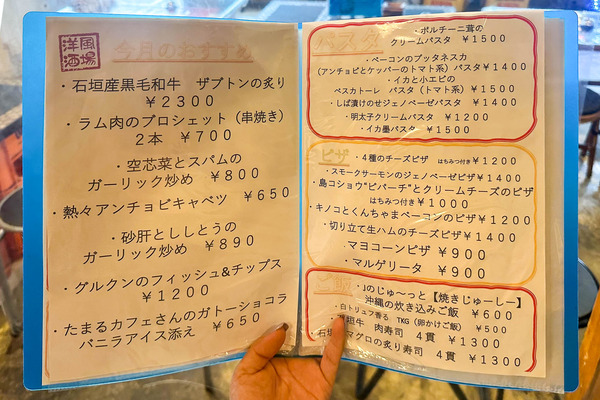 洋風
酒場
今月のおすすめ
・石垣産黒毛和牛 ザブトンの炙り
￥2300
・ラム肉のブロシェット（串焼き）
2本 ￥700
・空芯菜とスパムの
ガーリック炒め ￥800
・熱々アンチョビキャベツ ￥650
・砂肝とししとうの
ガーリック炒め ￥890
・グルクンのフィッシュ&チップス
￥1200
・たまるカフェさんのガトーショコラ
バニラアイス添え ￥650
パスタ
・ポルチーニ茸の
クリームパスタ ￥1500
・ベーコンのプッタネスカ
（アンチョビとケッパーのトマト系）パスタ￥1400
・イカと小エビの
ペスカトーレ パスタ（トマト系）￥1500
・しば漬けのせジェノベーゼパスタ ￥1400
・明太子クリームパスタ ￥1200
・イカ墨パスタ ￥1500
ピザ
・4種のチーズピザ はちみつ付き￥1200
・スモークサーモンのジェノベーゼピザ ￥1400
・島コショウ"ピパーチ"とクリームチーズのピザ
はちみつ付き￥1000
・キノコとくんちゃまベーコンのピザ ￥1200
・切り立て生ハムのチーズピザ ￥1400
・マヨコーンピザ ￥900
・マルゲリータ ￥900
ご飯
のじゅ〜っと【焼きじゅーしー】
沖縄の炊き込みご飯 ￥600
・白トリュフ香る TKG（卵かけご飯） ￥500
垣牛 肉寿司 4貫 ￥1300
・石垣 マグロの炙り寿司 4貫 ￥1300